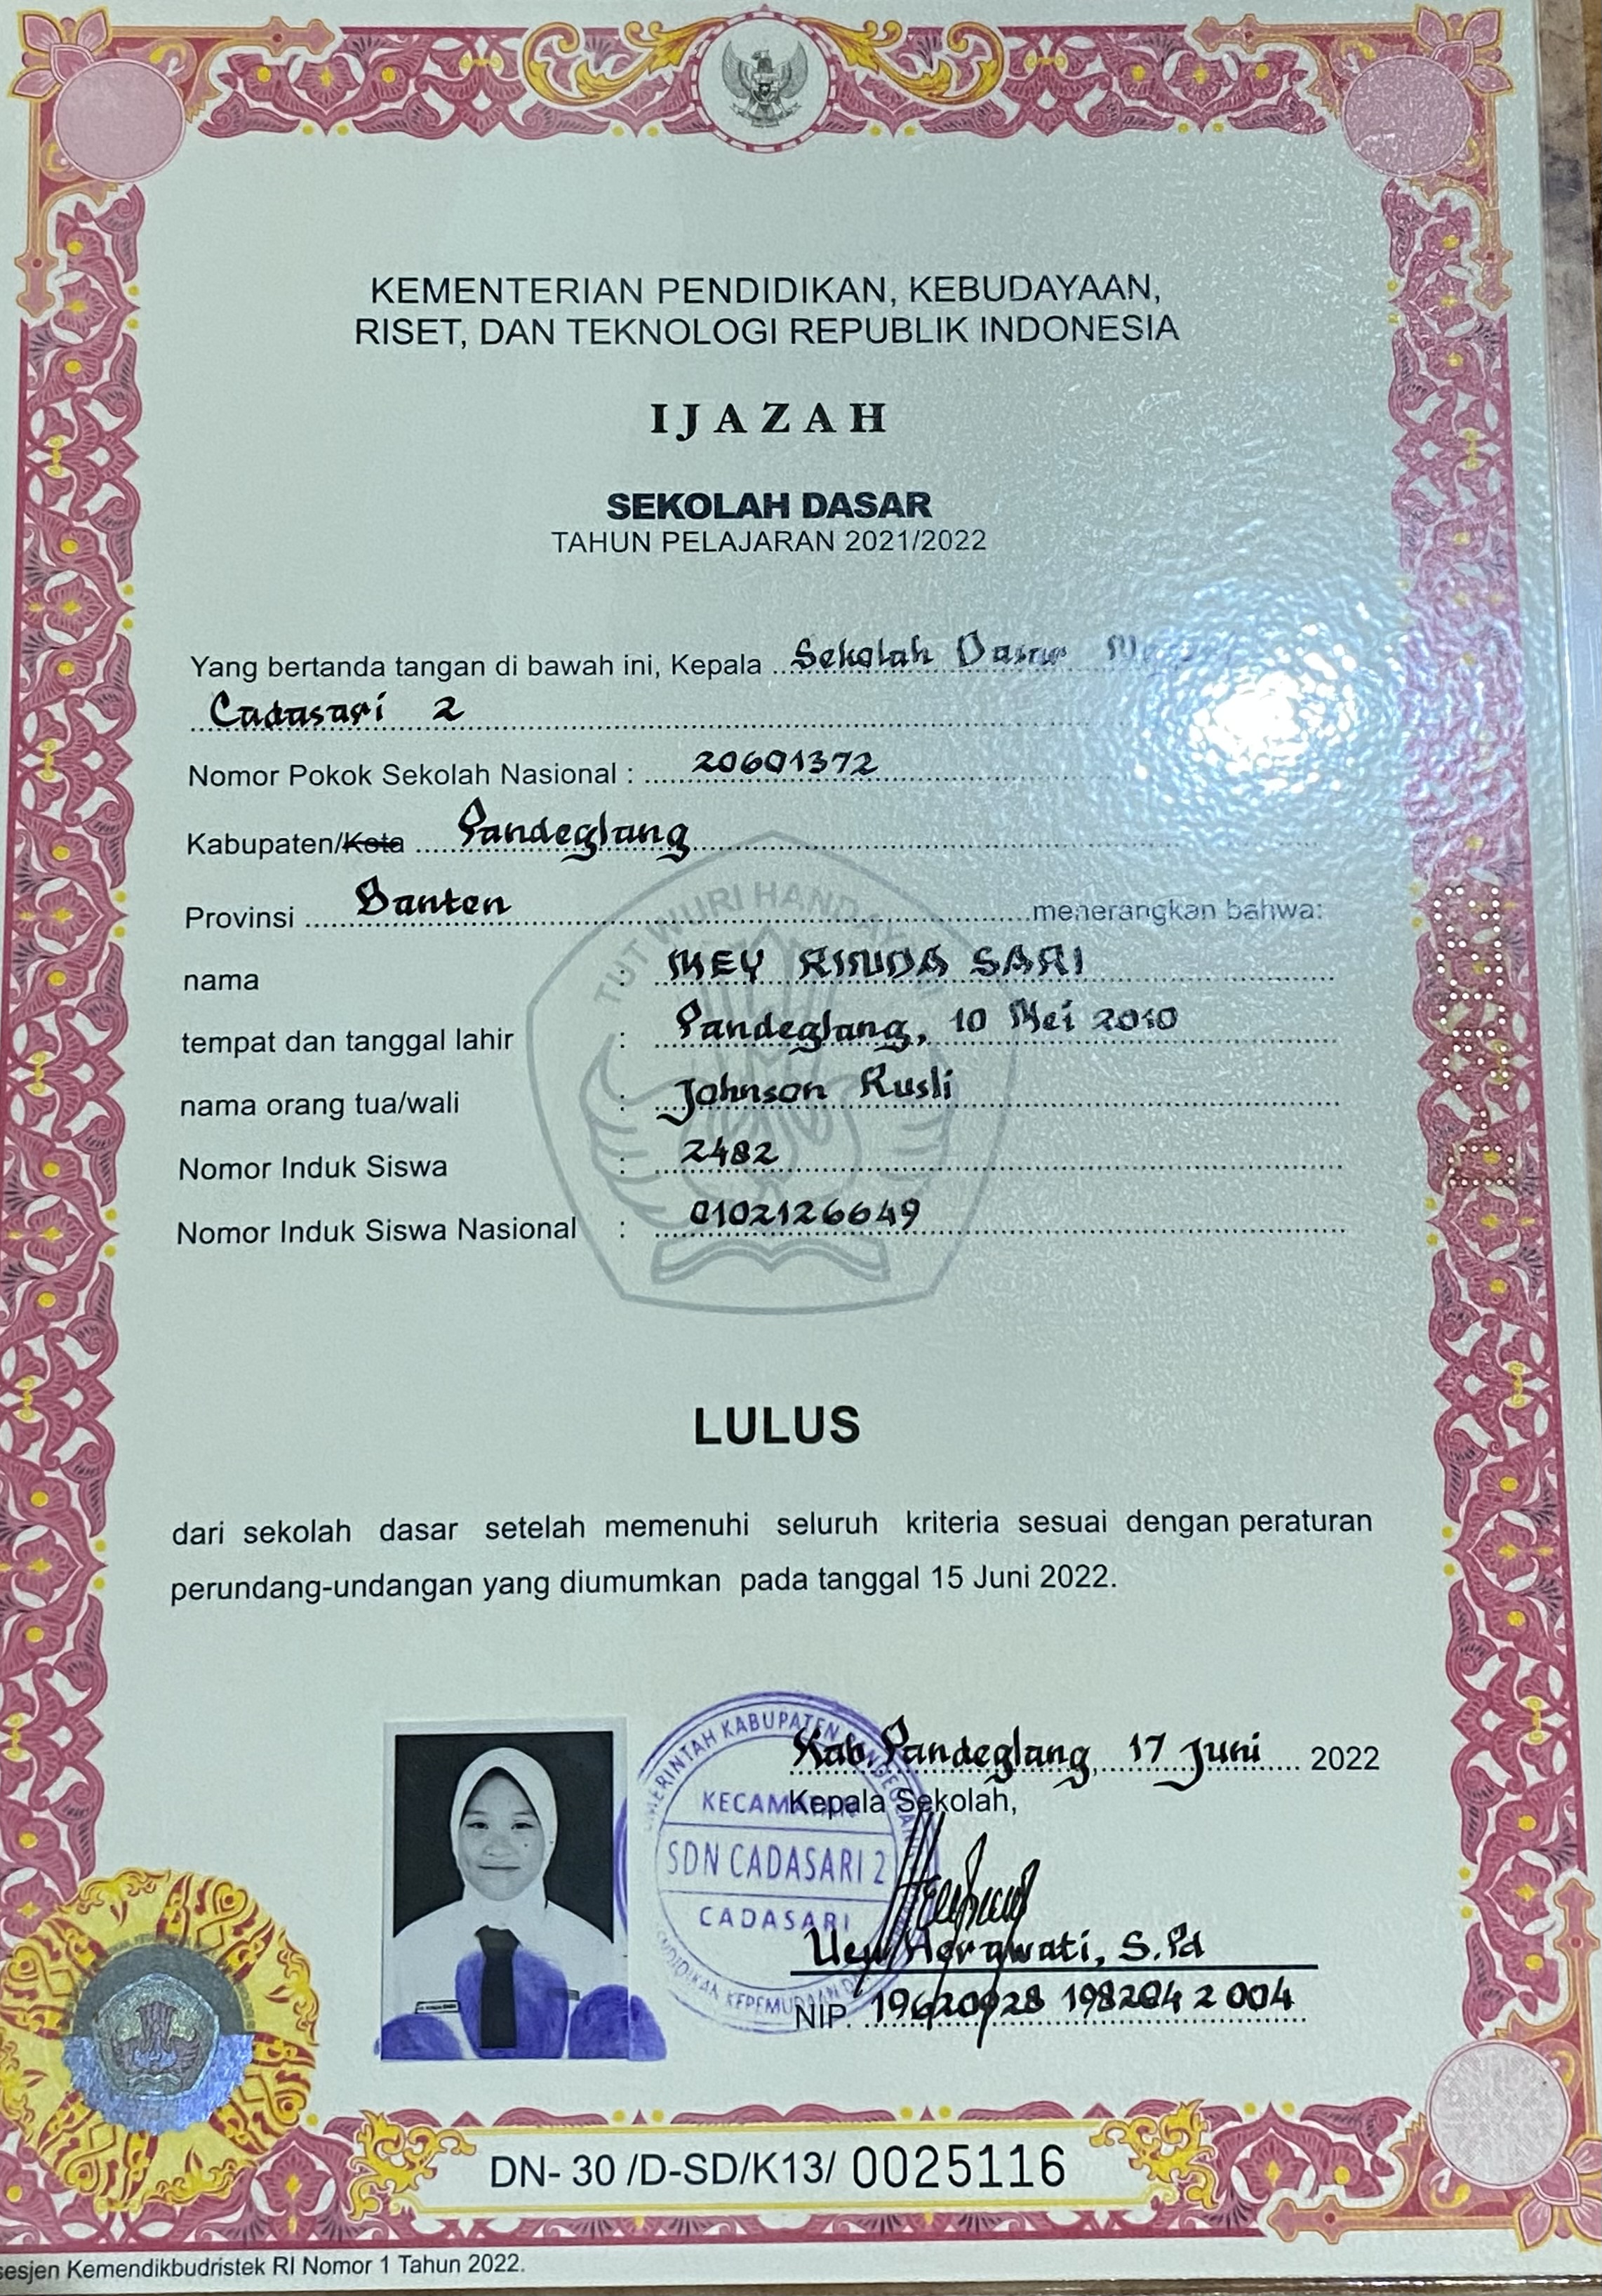 KEMENTERIAN PENDIDIKAN, KEBUDAYAAN,
RISET, DAN TEKNOLOGI REPUBLIK INDONESIA
IJAZAH
SEKOLAH DASAR
TAHUN PELAJARAN 2021/2022
Yang bertanda tangan di bawah ini, Kepala Sekolah Dasar
Cadasari 2
Nomor Pokok Sekolah Nasional : 20601372
Kabupaten/Kota Pandeglang
Provinsi Banten menerangkan bahwa:
TUT WURI HANDAYANI
nama : MEY RINDA SARI
tempat dan tanggal lahir : Pandeglang, 10 Mei 2010
nama orang tua/wali : Johnson Rusli
Nomor Induk Siswa : 2482
Nomor Induk Siswa Nasional : 0102126649
LULUS
dari sekolah dasar setelah memenuhi seluruh kriteria sesuai dengan peraturan
perundang-undangan yang diumumkan pada tanggal 15 Juni 2022.
Kab. Pandeglang, 17 Juni 2022
Kepala Sekolah,
KABUPATEN
SDN CADASARI 2
CADASARI
Herawati, S.Pd
NIP. 19620928 198204 2 004
DN- 30 /D-SD/K13/ 0025116
Kemendikbudristek RI Nomor 1 Tahun 2022.